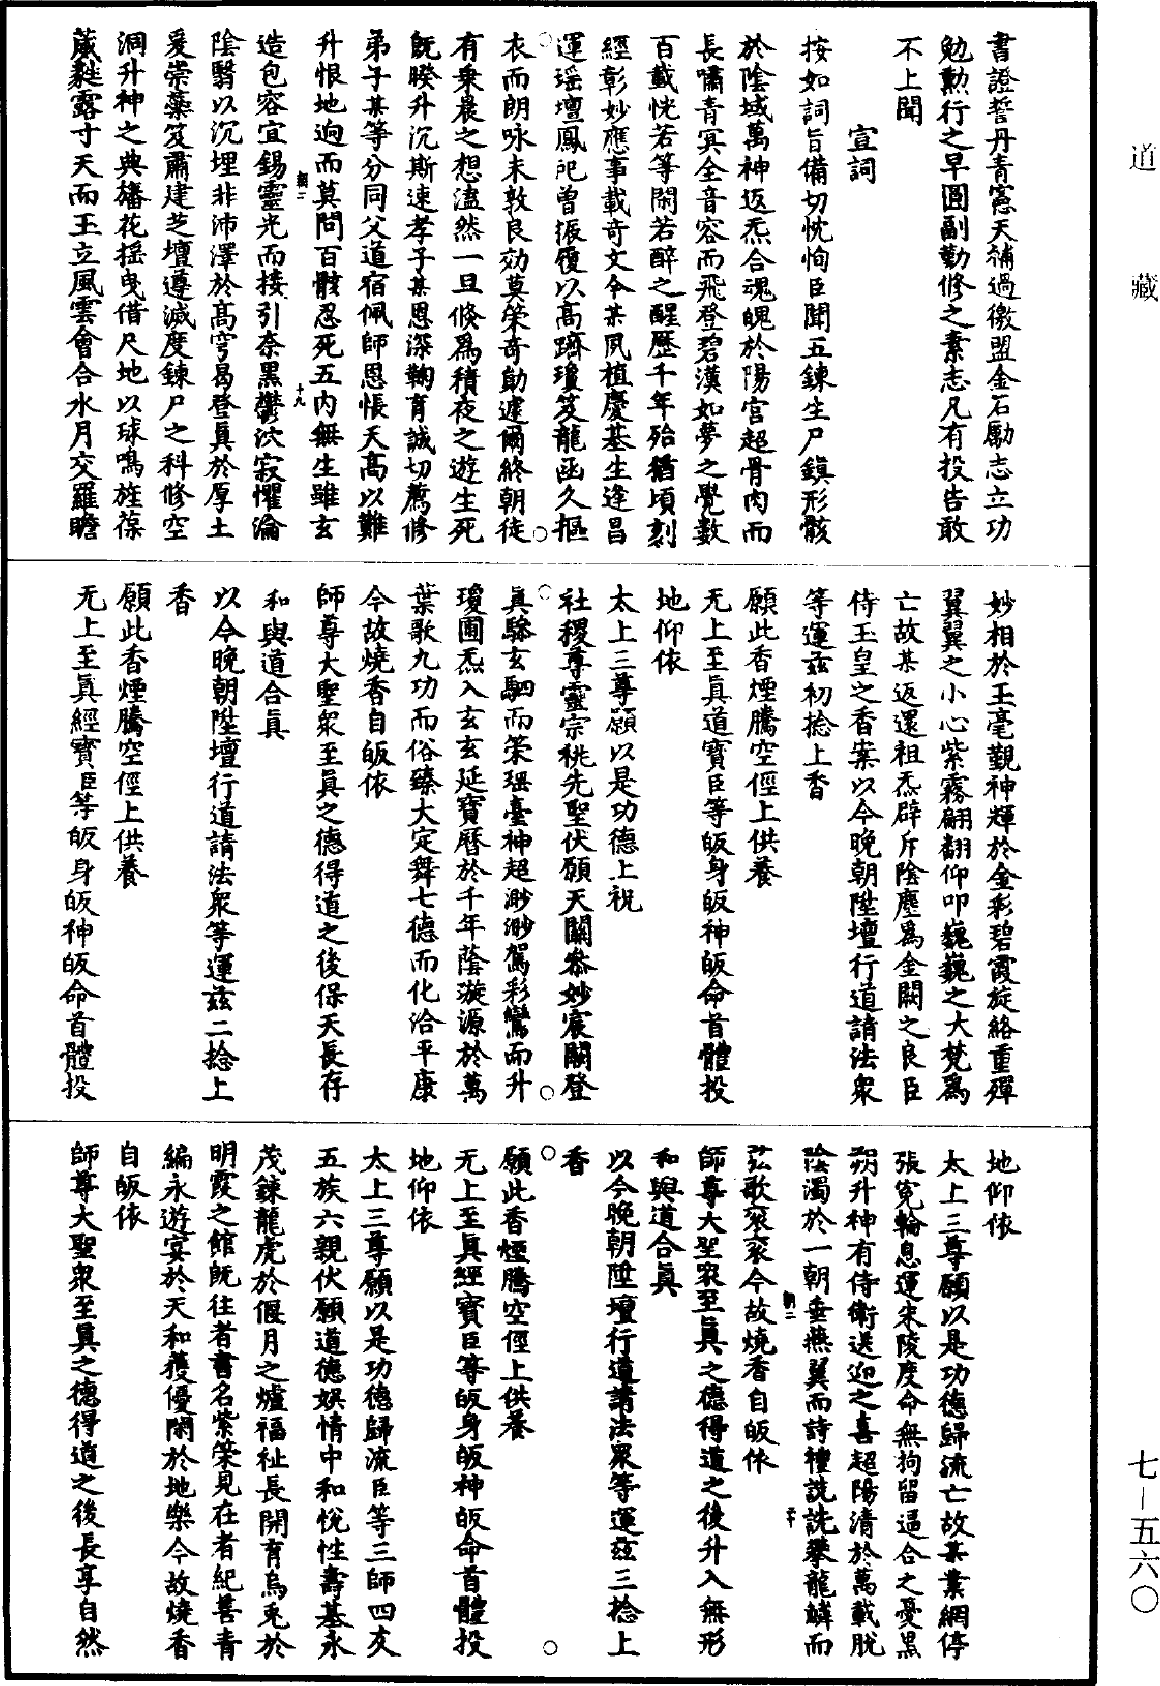 書證誓丹青憲天補過徼盟金石勵志立功
勉勲行之早圓副勤修之素志凡有投告敢
不上聞
宣詞
按如詞旨備切忱恂臣聞五鍊生尸鎮形骸
於陰域萬神返炁合魂魄於陽宮超骨肉而
長嘯青冥全音容而飛登碧漢如夢之覺數
百載恍若等閑若醉之醒歷千年殆猶頃刻
經彰妙應事載奇文今某夙植慶基生逢昌
運瑶壇鳳咜曾振履以高躋瓊笈龍函久摳
衣而朗咏未敦良効莫榮奇勛遽爾終朝徒
有乘晨之想溘然一旦倏爲積夜之遊生死
旣暌升沉斯速孝子某恩深鞠育誠切薦修
弟子某等分同父道宿佩師恩悵天高以難
升恨地逈而莫問百骸忍死五內無生雖玄
造包容宜錫靈光而接引奈黑鬱沈寂懼淪
陰翳以沉埋非沛澤於高穹曷登眞於厚土
爰崇蘂笈肅建芝壇遵滅度鍊尸之科修空
洞升神之典旛花摇曳借尺地以球鳴旌葆
葳蕤露寸天而玉立風雲會合水月交羅瞻
妙相於玉毫覲神輝於金彩碧霞旋絡重殫
翼翼之小心紫霧翩翻仰叩巍巍之大梵爲
亡故某返還祖炁辟斥陰塵爲金闕之良臣
侍玉皇之香案以今晚朝陞壇行道請法衆
等運茲初捻上香
願此香煙騰空徑上供養
无上至眞道寶臣等皈身皈神皈命首體投
地仰依
太上三尊願以是功德上祝
社稷尊靈宗祧先聖伏願天關叅妙宸闕登
眞驂玄駟而榮瑶臺神超渺渺駕彩鸞而升
瓊圃炁入玄玄延寶曆於千年蔭漩源於萬
葉歌九功而俗臻大定舞七德而化洽平康
今故燒香自皈依
師尊大聖衆至眞之德得道之後保天長存
和與道合眞
以今晚朝陞壇行道請法衆等運茲二捻上
香
願此香煙騰空徑上供養
无上至眞經寶臣等皈身皈神皈命首體投
地仰依
太上三尊願以是功德歸流亡故某業網停
張寃輪息運朱陵度命無拘留逼合之憂黑
朔升神有侍衛送迎之喜超陽清於萬載脫
陰濁於一朝垂燕翼而詩禮詵詵攀龍鱗而
弦歌衮衮今故燒香自皈依
師尊大聖衆至眞之德得道之後升入無形
和與道合眞
以今晚朝陞壇行道請法衆等運茲三捻上
香
願此香煙騰空徑上供養
无上至眞經寶臣等皈身皈神皈命首體投
地仰依
太上三尊願以是功德歸流臣等三師四友
五族六親伏願道德娛情中和悅性壽基永
茂鍊龍虎於偃月之爐福祉長開育烏兎於
明霞之館旣往者書名紫筞見在者紀善青
編永遊宴於天和獲優閑於地樂今故燒香
自皈依
師尊大聖衆至眞之德得道之後長享自然
道藏
七—五六〇